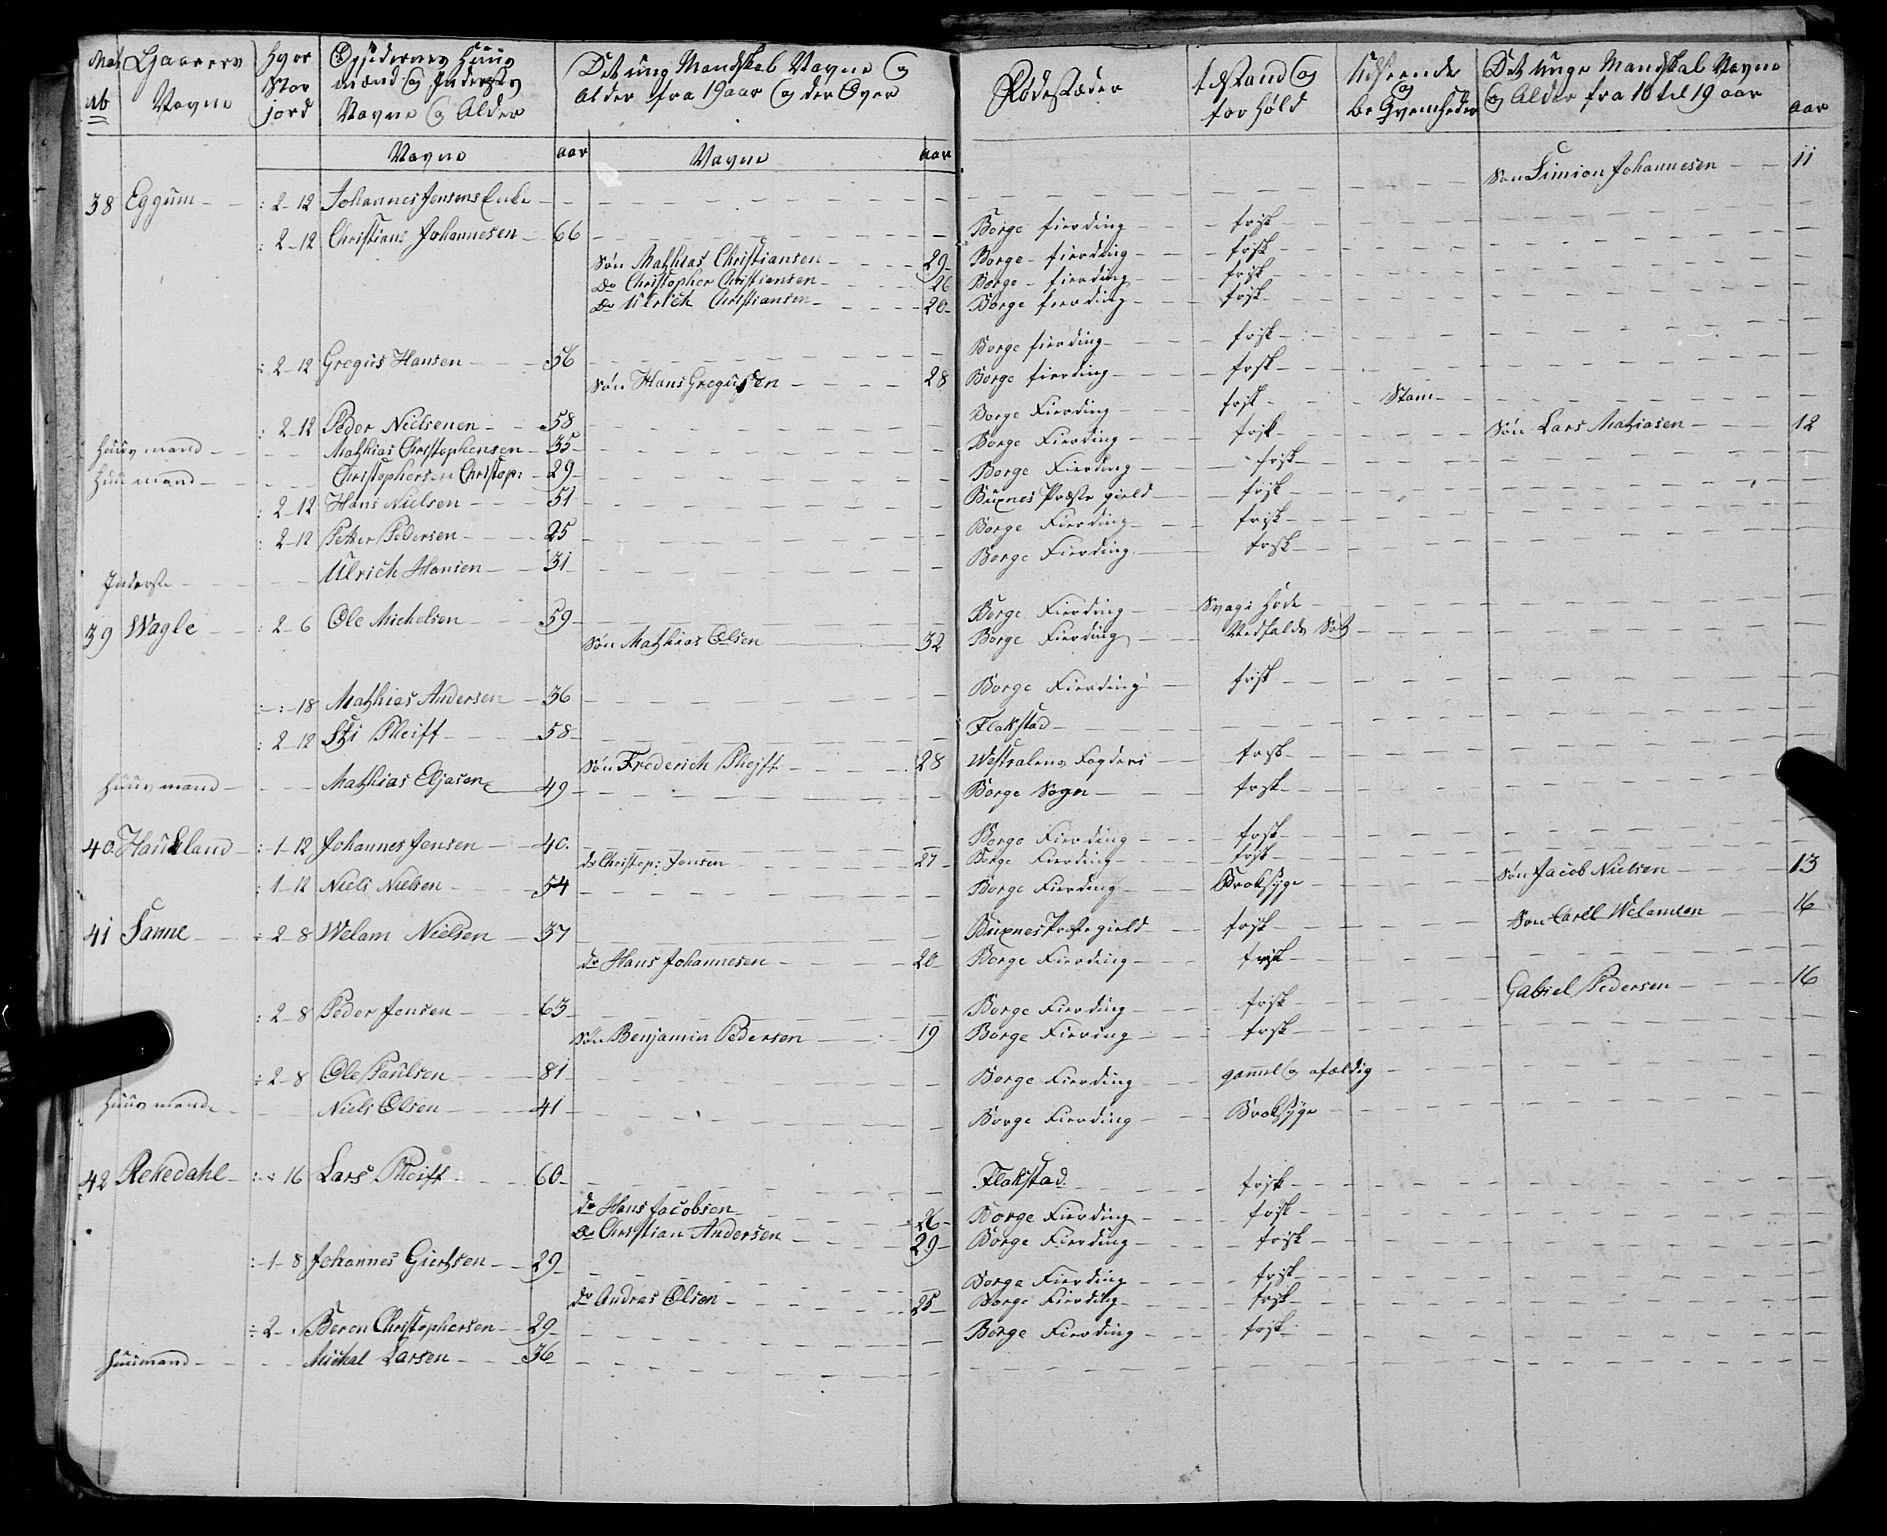 Mat Gaarens Hvor Opsidernes Huus Det ung Mandskab Navne og Fødestæder tilstand og Udseende Det unge Mandskab Navne
No Navne Stor mænd og Inderstes Alder fra 19 aar og der Over forhold og og Alder fra 10 til 19 aar aar
jord Navne og Alder beqvemheder
Navne aar Navne aar
Søn Simion Johannesen 11
38 Eggum : 2-12 Johannes Jensens Enke
: 2-12 Christian Johannesen 66 Borge fierding frisk
Søn Mathias Christiansen 29 Borge fierding frisk
Do Christopher Christiansen 26 Borge fierding frisk
Do Ulrich Christiansen 20 Borge fierding frisk
: 2-12 Gregus Hansen 56 Borge fierding frisk
Søn Hans Gregusen 28 Borge fierding frisk
: 2-12 Peder Nielsenen 58 Borge Fierding frisk Stam
Huus mand Mathias Christophensen 35 Borge Fierding frisk Søn Lars Mathiasen 12
Huus mand Christophersen Christop: 29 Borge Fierding frisk
: 2-12 Hans Nielsen 51 Buxnes Præste gield frisk
: 2-12 Petter Pedersen 25 Borge Fierding frisk
Inderste Ulrich Hansen 31 Borge Fierding frisk
39 Wagle : 2-6 Ole Michelsen 59 Borge Fierding Svagi Hode
Søn Mathias Olsen 32 Borge Fierding Vedfalds Sot
: - : - 18 Mathias Andersen 36 Borge Fierding frisk
: 2-12 Pleift 58 Flakstad
Søn Frederich Pleift 28 Westralens Fogderi frisk
Huus mand Mathias Eljasen 49 Borge Sogn frisk
40 Haukland : 1-12 Johannes Jensen 40 Borge Fierding frisk
do Christop: Jensen 27 Borge Fierding frisk
: 1-12 Niels Nielsen 54 Borge Fierding Broksyge Søn Jacob Nielsen 13
41 Sanne : 2-8 Welam Nielsen 37 Buxnes Præste gield frisk Søn Carel Welamsen 16
do Hans Johannesen 20 Borge Fierding frisk
: 2-8 Peder Jensen 63 Borge Fierding frisk Gabiel Pedersen 16
Søn Benjamin Pedersen 19 Borge Fierding frisk
: 2-8 Ole Paulsen 81 Borge Fierding gammel og afældig
Huus mand Niels Olsen 41 Borge Fierding Broksyge
42 Rekedahl : - : 16 Lars Pleift 60 Flakstad frisk
do Hans Jacobsen 26 Borge Fierding frisk
do Christian Andersen 29 Borge Fierding frisk
: 1-8 Johannes Giertsen 29 Borge Fierding frisk
do Andras Olsen 25 Borge Fierding frisk
: 2 - Beren Christophersen 29 Borge Fierding frisk
Huusmand Mickal Larsen 36